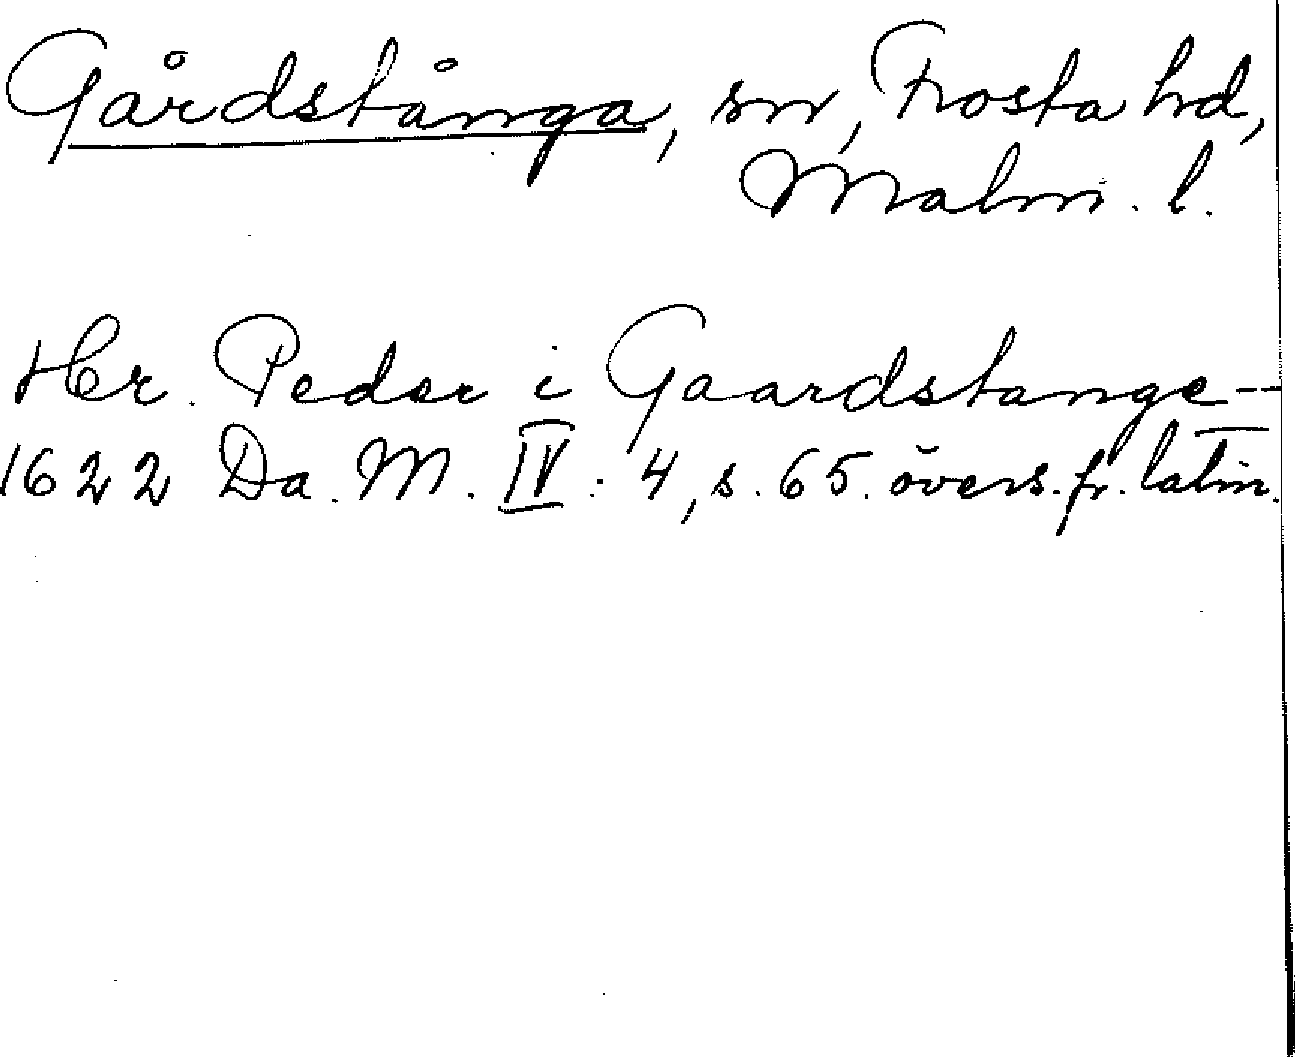 Gårdstånga, sn, Frosta hd,
Malm. l.
Her. Peder i Gaardstange —
1622 Da. M. IV: 4, s. 65. övers. fr. latin.